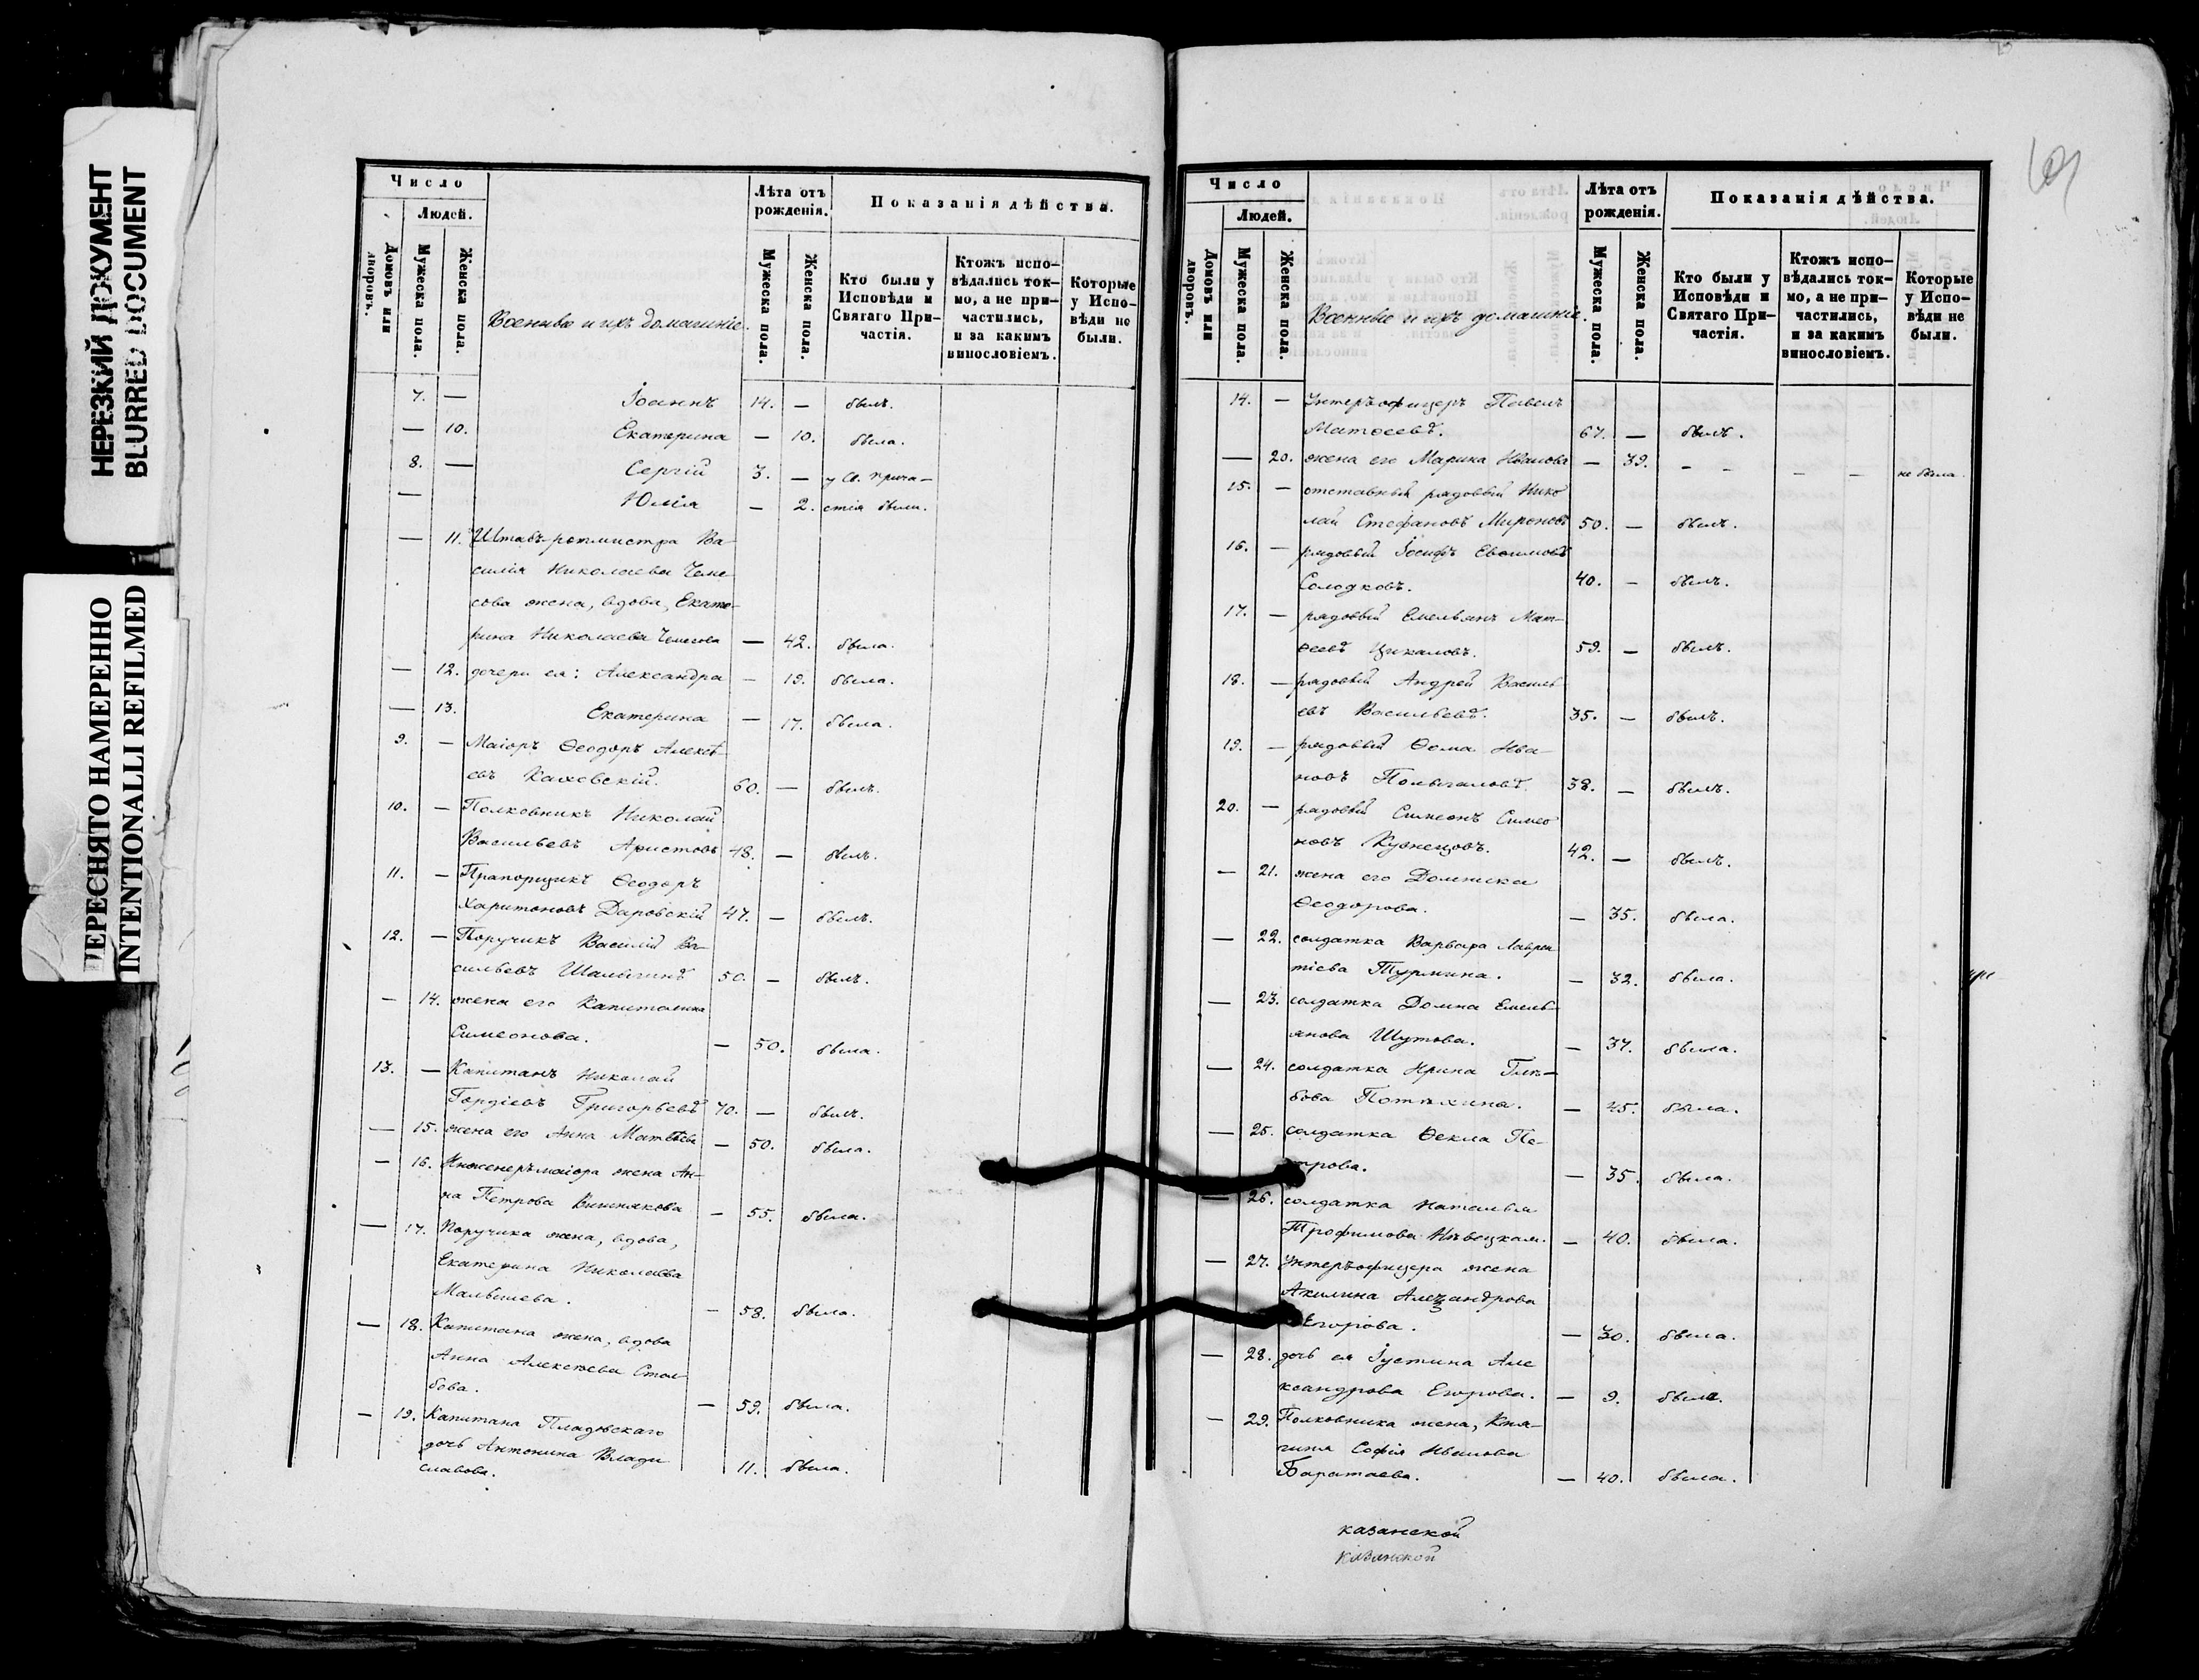 НЕРЕЗКИЙ ДОКУМЕНТ
BLURRED DOCUMENT
ПЕРЕСНЯТО НАМЕРЕННО
INTENTIONALLI REFILMED
Число
Людей.
Домовъ или дворовъ.
Мужеска пола.
Женска пола.
Военные и ихъ домашніе.
Лѣта отъ рожденія.
Мужеска пола.
Женска пола.
Показанія дѣйства.
Кто были у Исповѣди и Святаго При-частія.
Ктожъ испо-вѣдались ток-мо, а не при-частились, и за какимъ винословіемъ.
Которые у Испо-вѣди не были.
7. — Іоаннъ 14. — былъ.
— 10. Екатерина — 10. была.
8. — Сергій 3. — у Св. Прича-
— Юлія — 2. стія были.
— 11. Штабъ-ротмистра Ва-
силія Николаева
жена, вдова, Екате-
рина Николаева — 42. была.
— 12. дочери ея: Александра — 19. была.
— 13. Екатерина — 17. была.
9. — Маіоръ Ѳеодоръ Алексѣ-
евъ Каховскій. 60. — былъ.
10. — Полковникъ Николай
Васильевъ Аристовъ 48. — былъ.
11. — Прапорщикъ Ѳеодоръ
Харитоновъ Даровскій 47. — былъ.
12. — Поручикъ Василій Ва-
сильевъ Шалыгинъ 50. — былъ.
— 14. жена его Капитолина
Симеонова. — 50. была.
13. — Капитанъ Николай
Гордіевъ Григорьевъ 70. — былъ.
— 15. жена его Анна Матвѣева — 50. была.
— 16. Инженеръ маіора жена Ан-
на Петрова Вишнякова — 55. была.
— 17. Поручика жена, вдова,
Екатерина Николаева
Малышева. — 58. была.
— 18. Капитана жена, вдова
Анна Алексѣева Стол-
бова. — 59. была.
— 19. Капитана
дочь Антонина Влади
славова. 11. была.
Число
Людей.
Домовъ или дворовъ.
Мужеска пола.
Женска пола.
Военные и ихъ домашніе.
Лѣта отъ рожденія.
Мужеска пола.
Женска пола.
Показанія дѣйства.
Кто были у Исповѣди и Святаго При-частія.
Ктожъ испо-вѣдались ток-мо, а не при-частились, и за какимъ винословіемъ.
Которые у Испо-вѣди не были.
14. — Унтеръ офицеръ Павелъ
Матѳеевъ. 67. — былъ.
— 20. жена его Марина Иванова — 39. — — — — не была.
15. — отставный рядовый Нико
лай Стефановъ Мироновъ 50. — былъ.
16. — рядовый Іосифъ Евѳимовъ
Солодковъ. 40. — былъ.
17. — рядовый Емельянъ Мат-
ѳеевъ Цыкаловъ. 59. — былъ.
18. — рядовый Андрей Василь
евъ Васильевъ. 35. — былъ.
19. — рядовый Ѳома Ива-
новъ 38. — былъ.
20. — рядовый Симеонъ Симео
новъ Кузнецовъ. 42. — былъ.
— 21. жена его Домника
Ѳеодорова. — 35. была.
— 22. солдатка Варвара Лаврен
тіева Турмина. — 32. была.
— 23. солдатка Домна Емель-
янова Шутова. — 37. была.
— 24. солдатка Ирина Глѣ-
бова Потѣхина. — 45. была.
— 25. солдатка Ѳекла Пе-
трова. — 35. была.
— 26. солдатка Наталья
Трофимова — 40. была.
— 27. Унтеръ офицера жена
Акилина Александрова
Егорова. — 30. была.
— 28. дочь ея Іустина Але
ксандрова Егорова. — 9. была.
— 29. Полковника жена, Кня-
гиня Софія Иванова
Баратаева. — 40. была.
казанской
казанской